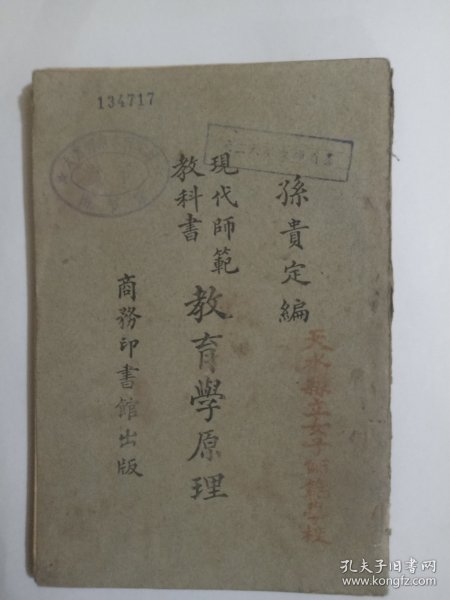 134717
孫貴定編
現代師範
教科書
教育學原理
商務印書館出版
天水縣立女子師範學校
孔夫子旧书网
www.kongfz.com